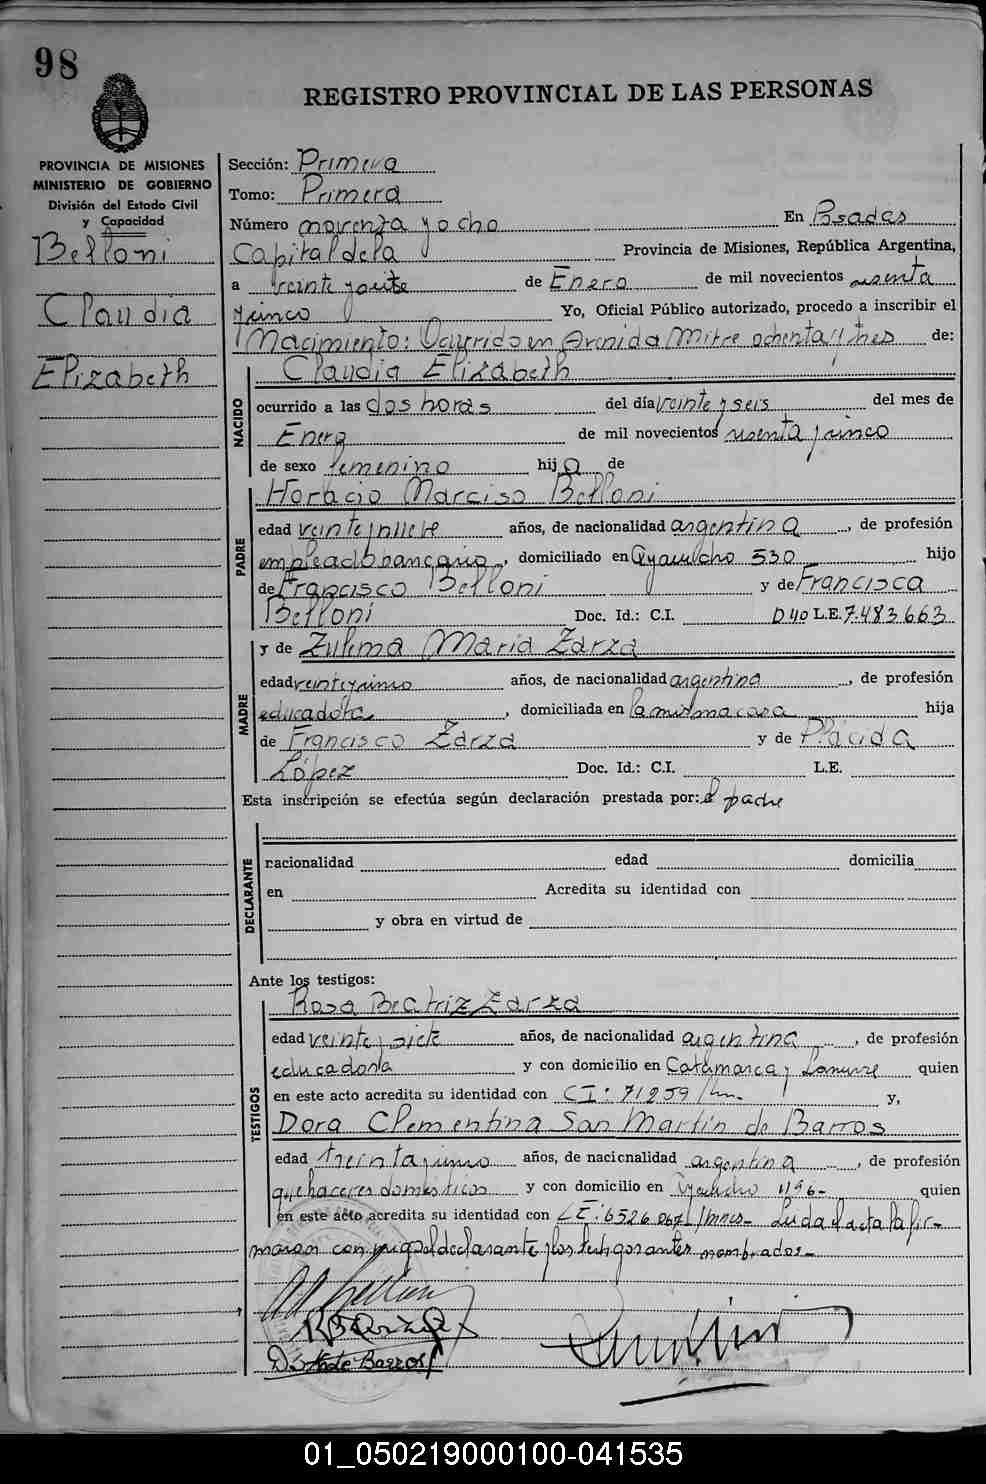 98
REGISTRO PROVINCIAL DE LAS PERSONAS
PROVINCIA DE MISIONES
MINISTERIO DE GOBIERNO
División del Estado Civil
y Capacidad
Belloni
Claudia
Elizabeth
Sección: Primera
Tomo: Primera
Número noventa y ocho En Psadas
Capital de la Provincia de Misiones, República Argentina,
a veinte y de Enero de mil novecientos
Yo, Oficial Público autorizado, procedo a inscribir el
Nacimiento: Ocurrido en Avenida Mitre ochenta y tres de:
NACIDO
Claudia Elizabeth
ocurrido a las dos horas del día veinte y seis del mes de
Enero de mil novecientos
de sexo femenino hija de
PADRE
Horacio Narciso Belloni
edad veinte y nueve años, de nacionalidad argentina, de profesión
empleado bancario, domiciliado en Ayacucho 530 hijo
de Francisco Belloni y de Francisca
Belloni Doc. Id.: C.I. D40 L.E. 7.483663
MADRE
y de Zulema Maria Zarza
edad años, de nacionalidad argentina, de profesión
educadora, domiciliada en la misma casa hija
de Francisco Zarza y de Plácida
López Doc. Id.: C.I. L.E.
Esta inscripción se efectúa según declaración prestada por: el padre
DECLARANTE
nacionalidad edad domicilia
en Acredita su identidad con
y obra en virtud de
Ante los testigos:
TESTIGOS
Rosa Beatriz Zarza
edad veinte y siete años, de nacionalidad argentina, de profesión
educadora y con domicilio en Catamarca y quien
en este acto acredita su identidad con CI: 71259 y,
Dora Clementina San Martín de Barros
edad treinta años, de nacionalidad argentina, de profesión
quehaceres domésticos y con domicilio en Ayacucho quien
en este acto acredita su identidad con LE: Leida el acta la fir-
maron conmigo el declarante y los testigos antes nombrados-
01_050219000100-041535